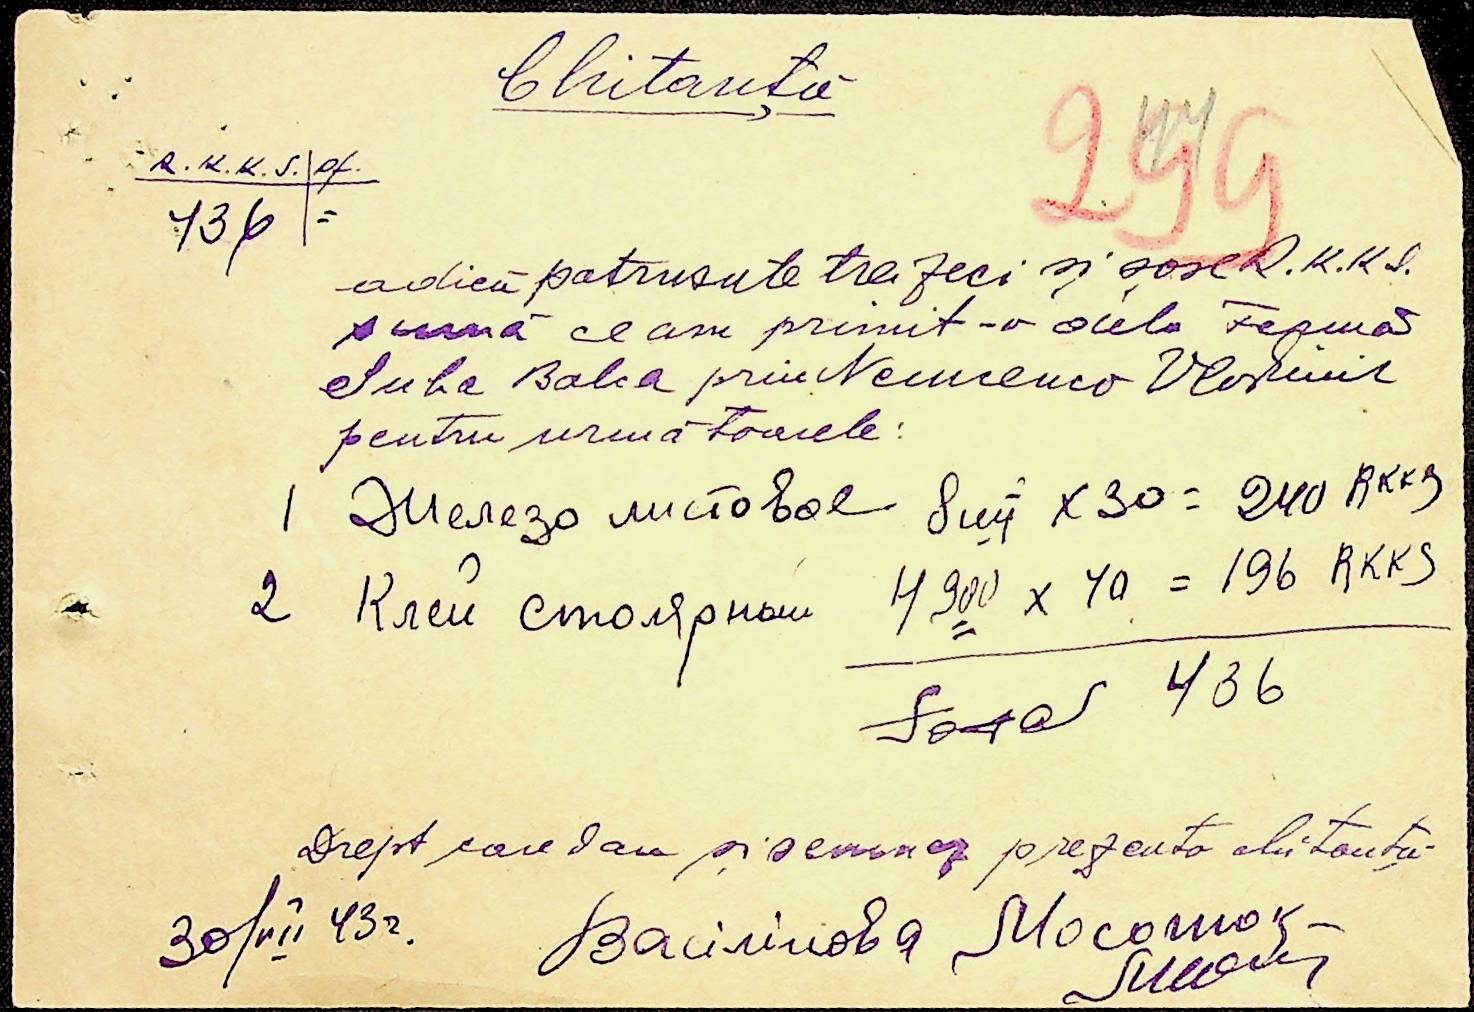 Chitanță
299
44
R.K.K.S. | pf.
436 | =
adică patrusute treizeci și șase R.K.K.S.
sumă ce am primit-o dela Ferma
Suha Balca prin Nemcenco Vladimir
pentru următoarele:
1 Железо листовое 8 шт × 30 = 240 RKKS
2 Клей столярный 4900 × 40 = 196 RKKS
Total 436
Drept care dau și semnez prezenta chitanță
30/VII 43 г.